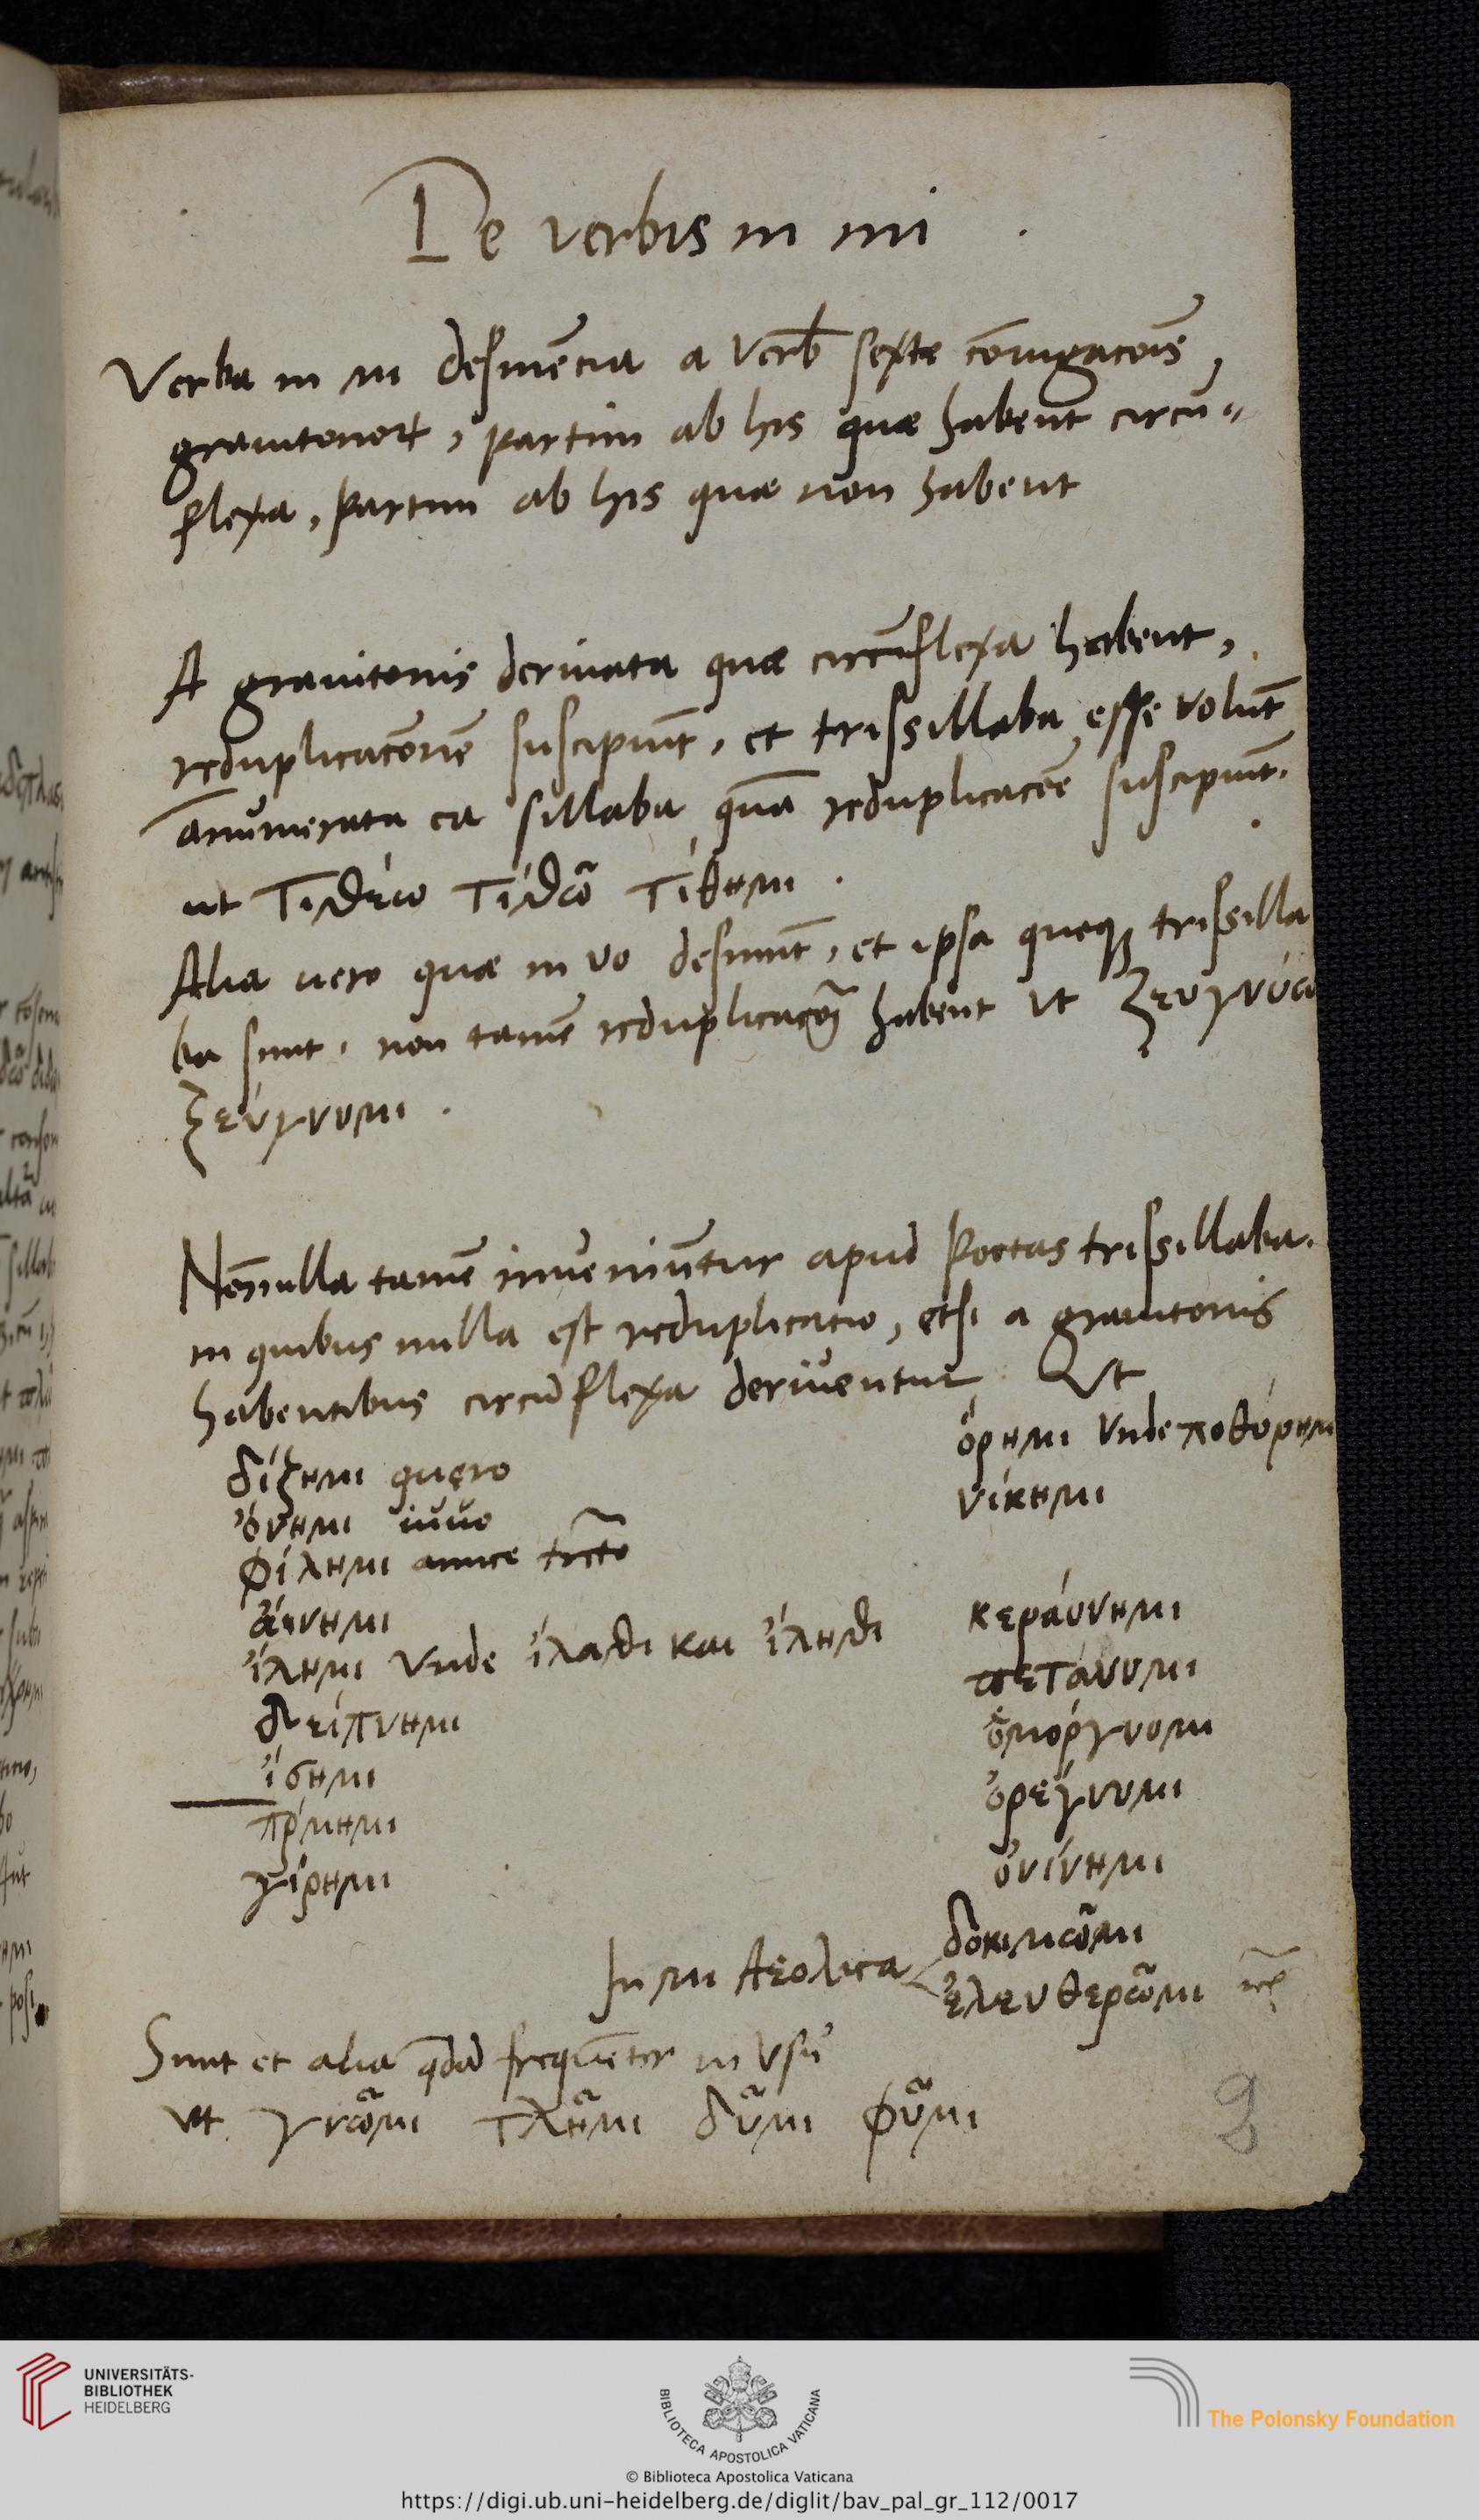 De verbis in mi
Verba in μι desinēcia a verb̄ sexte cōiugacōis,
grauitonoꝝ, partim ab his quæ habent circū„
flexa, partim ab his quæ non habent
A grauitonis deriuata quæ circūflexa habent,
reduplicacōnē suscipiūt, et trissillaba esse volūt
ānumerata ea sillaba quā reduplicacōe suscipiūt.
ut τιθέω τιθῶ τίθημι .
Alia uero quæ in υο desinūt, et ipsa quoqꝫ trissilla
ba sunt, non tamē reduplicacōꝫ habent ut ζευγνύω
ζεύγνυμι .
Nōnulla tamē inueniūtur apud poetas trissillaba.
in quibus nulla est reduplicatio, etsi a grauitonis
habentibus circūflexa deriuentur. Vt
δίζημι quęro
ὄνημι iuuo
φίλημι amice tr̄cto
ἄινημι
ἵλημι Vnde ἵλαθι και ἵληθι
δείπνημι
ἴσημι
πρίμημι
γίρημι
ὄρημι Vnde ποθόρημι
νίκημι
κεράυνημι
πετάνυμι
ὀμόργνυμι
ὀρεγνυμι
ὀνίνημι
In μι Aeολica δοκιμῶμι
ἐλευθερῶμι
Sunt et alia q̄dā frequēter in vsu
Vt γνῶμι τλῆμι δῦμι φῦμι
9
UNIVERSITÄTS-
BIBLIOTHEK
HEIDELBERG
BIBLIOTECA APOSTOLICA VATICANA
The Polonsky Foundation
© Biblioteca Apostolica Vaticana
https://digi.ub.uni-heidelberg.de/diglit/bav_pal_gr_112/0017